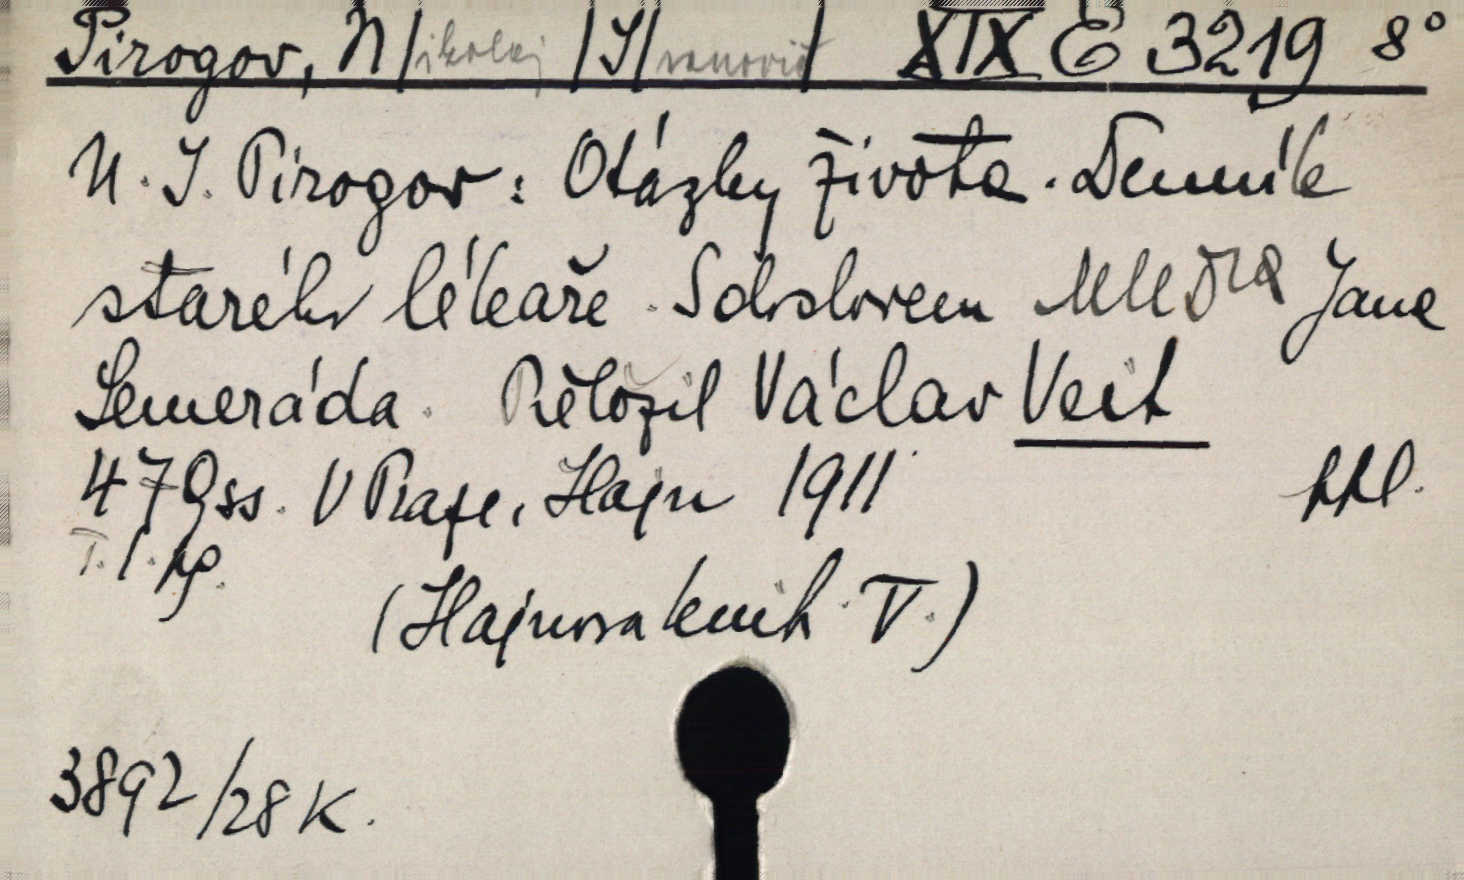 Pirogov, N/ikolaj /I/vanovič/ XIX E 3219 8°
N. I. Pirogov: Otázky života. Denník
starého lékaře. S doslovem MUDra Jana
Semeráda. Přeložil Václav Veit
479 ss. V Praze, Hajn 1911
T. 1. hpl.
(Hajnova knih. V.)
3892/28 K.